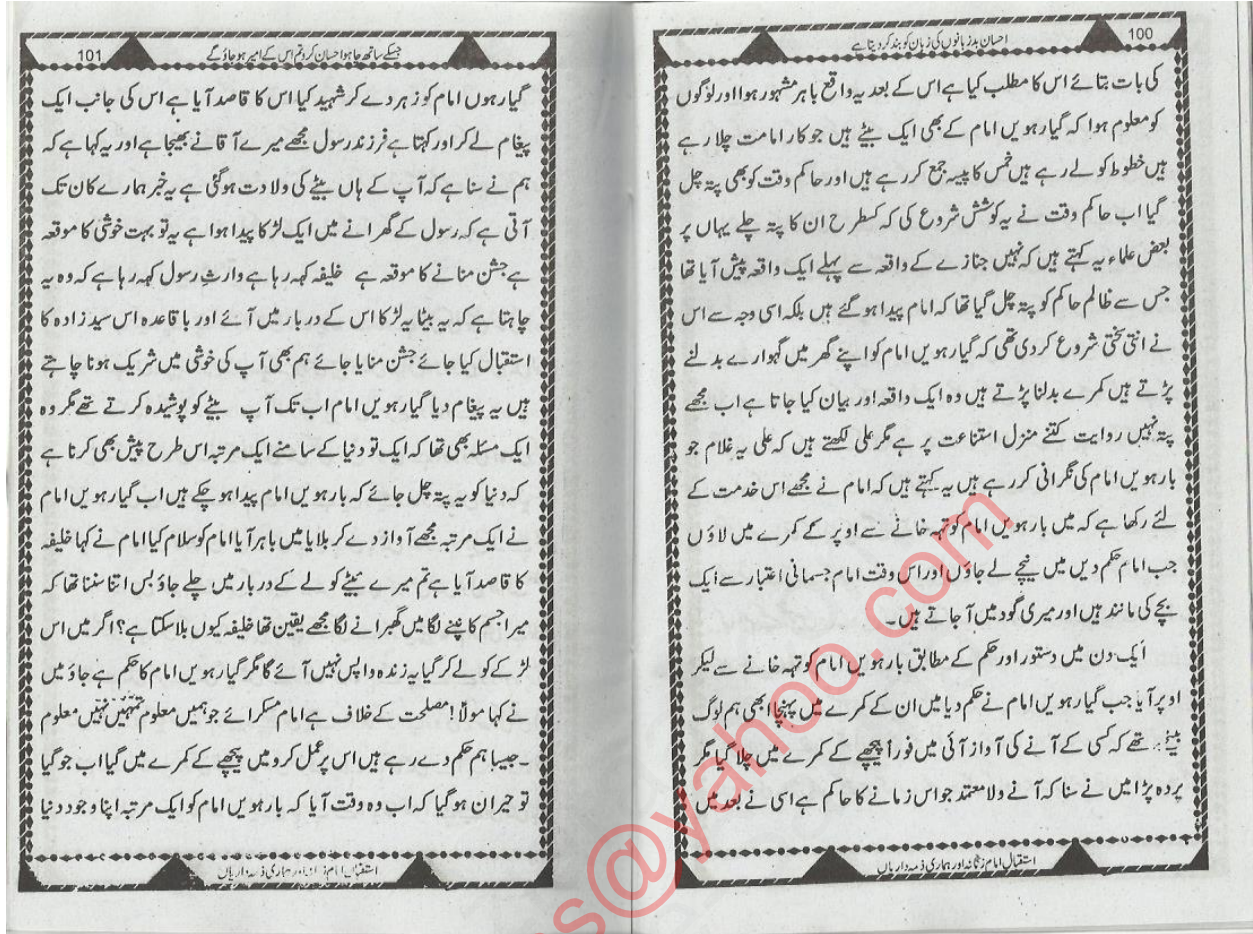 100
احسان بدزبانوں کی زبان کو بند کر دیتا ہے
کی بات بتائے اس کا مطلب کیا ہے اس کے بعد یہ واقع باہر مشہور ہوا اور لوگوں
کو معلوم ہوا کہ گیارہویں امام کے بھی ایک بیٹے ہیں جو کار امامت چلا رہے
ہیں خطوط کو لے رہے ہیں خمس کا پیسہ جمع کر رہے ہیں اور حاکم وقت کو بھی پتہ چل
گیا اب حاکم وقت نے یہ کوشش شروع کی کہ کسطرح ان کا پتہ چلے یہاں پر
بعض علماء یہ کہتے ہیں کہ نہیں جنازے کے واقعہ سے پہلے ایک واقعہ پیش آیا تھا
جس سے ظالم حاکم کو پتہ چل گیا تھا کہ امام پیدا ہو گئے ہیں بلکہ اسی وجہ سے اس
نے اتنی سختی شروع کر دی تھی کہ گیارہویں امام کو اپنے گھر میں گہوارے بدلنے
پڑتے ہیں کمرے بدلنا پڑتے ہیں وہ ایک واقعہ اور بیان کیا جاتا ہے اب مجھے
پتہ نہیں روایت کتنے منزل استناعت پر ہے مگر علی لکھتے ہیں کہ علی یہ غلام جو
بارہویں امام کی نگرانی کر رہے ہیں یہ کہتے ہیں کہ امام نے مجھے اس خدمت کے
لئے رکھا ہے کہ میں بارہویں امام کو تہہ خانے سے اوپر کے کمرے میں لاؤں
جب امام حکم دیں میں نیچے لے جاؤں اور اس وقت امام جسمانی اعتبار سے ایک
بچے کی مانند ہیں اور میری گود میں آ جاتے ہیں۔
ایک دن میں دستور اور حکم کے مطابق بارہویں امام کو تہہ خانے سے لیکر
اوپر آیا جب گیارہویں امام نے حکم دیا میں ان کے کمرے میں پہنچا ابھی ہم لوگ
تھے کہ کسی کے آنے کی آواز آئی میں فوراً پیچھے کے کمرے میں چلا گیا مگر
پردہ پڑا میں نے سنا کہ آنے ولا معتمد جو اس زمانے کا حاکم ہے اسی نے بعد میں
استقبال امام زمانہ اور ہماری ذمہ داریاں
101
جسکے ساتھ چاہو احسان کرو تم اس کے امیر ہو جاؤ گے
گیارہوں امام کو زہر دے کر شہید کیا اس کا قاصد آیا ہے اس کی جانب ایک
پیغام لے کر اور کہتا ہے فرزند رسول مجھے میرے آقا نے بھیجا ہے اور یہ کہا ہے کہ
ہم نے سنا ہے کہ آپ کے ہاں بیٹے کی ولادت ہو گئی ہے یہ خبر ہمارے کان تک
آتی ہے کہ رسول کے گھرانے میں ایک لڑکا پیدا ہوا ہے یہ تو بہت خوشی کا موقعہ
ہے جشن منانے کا موقعہ ہے خلیفہ کہہ رہا ہے وارثِ رسول کہہ رہا ہے کہ وہ یہ
چاہتا ہے کہ یہ بیٹا یہ لڑکا اس کے دربار میں آئے اور باقاعدہ اس سید زادہ کا
استقبال کیا جائے جشن منایا جائے ہم بھی آپ کی خوشی میں شریک ہونا چاہتے
ہیں یہ پیغام دیا گیارہویں امام اب تک آپ بیٹے کو پوشیدہ کرتے تھے مگر وہ
ایک مسئلہ بھی تھا کہ ایک تو دنیا کے سامنے ایک مرتبہ اس طرح پیش بھی کرنا ہے
کہ دنیا کو یہ پتہ چل جائے کہ بارہویں امام پیدا ہو چکے ہیں اب گیارہویں امام
نے ایک مرتبہ مجھے آواز دے کر بلایا میں باہر آیا امام کو سلام کیا امام نے کہا خلیفہ
کا قاصد آیا ہے تم میرے بیٹے کو لے کے دربار میں چلے جاؤ بس اتنا سننا تھا کہ
میرا جسم کانپنے لگا میں گھبرانے لگا مجھے یقین تھا خلیفہ کیوں بلا سکتا ہے؟ اگر میں اس
لڑکے کو لے کر گیا یہ زندہ واپس نہیں آئے گا مگر گیارہویں امام کا حکم ہے جاؤ میں
نے کہا مولا! مصلحت کے خلاف ہے امام مسکرائے جو ہمیں معلوم تمہیں نہیں معلوم
۔جیسا ہم حکم دے رہے ہیں اس پر عمل کرو میں پیچھے کے کمرے میں گیا اب جو گیا
تو حیران ہو گیا کہ اب وہ وقت آیا کہ بارہویں امام کو ایک مرتبہ اپنا وجود دنیا
استقبال امام زمانہ اور ہماری ذمہ داریاں
s@yahoo.com